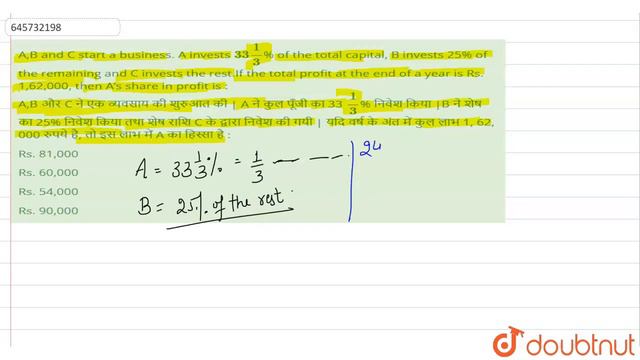 645732198
A,B and C start a business. A invests 33 1/3 % of the total capital, B invests 25% of
the remaining and C invests the rest.If the total profit at the end of a year is Rs.
1,62,000, then A's share in profit is :
A,B और C ने एक व्यवसाय की शुरुआत की | A ने कुल पूँजी का 33 1/3 % निवेश किया |B ने शेष
का 25% निवेश किया तथा शेष राशि C के द्वारा निवेश की गयी | यदि वर्ष के अंत में कुल लाभ 1, 62,
000 रुपये है, तो इस लाभ में A का हिस्सा है :
Rs. 81,000
Rs. 60,000
Rs. 54,000
Rs. 90,000
A = 33 1/3 % = 1/3
B = 25% of the rest
24
doubtnut